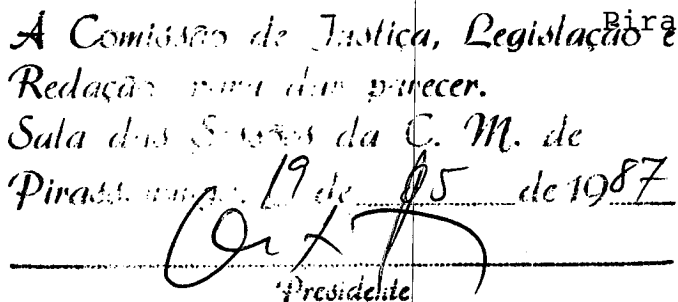 Á Comissão de Justiça, Legislação e
Pira
Redação para dar parecer.
Sala das Sessões da C. M. de
Pirassununga, 19 de 05 de 1987
Presidente